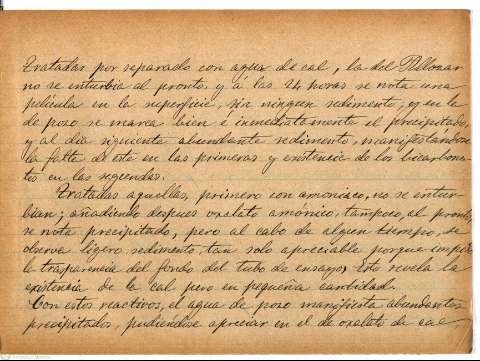 Tratadas por separado con agua de cal, la del Pellonar
no se enturbia al pronto y á las 24 horas se nota una
película en la superficie, sin ningun sedimento; y en la
de pozo se marca bien é inmediatamente el precipitado,
y al dia siguiente abundante sedimento, manifestándose
la falta de este en las primeras y existencia de los bicarbona-
tos en las segundas.
Tratadas aquellas, primero con amoniaco, no se entur-
bian; añadiendo despues oxalato amónico, tampoco, al pronto,
se nota precipitado, pero al cabo de algun tiempo, se
observa ligero sedimento, tan solo apreciable porque empaña
la trasparencia del fondo del tubo de ensayo; Esto revela la
existencia de la cal pero en pequeña cantidad.
Con estos reactivos, el agua de pozo manifiesta abundantes
precipitados, pudiéndose apreciar en el de oxalato de cal